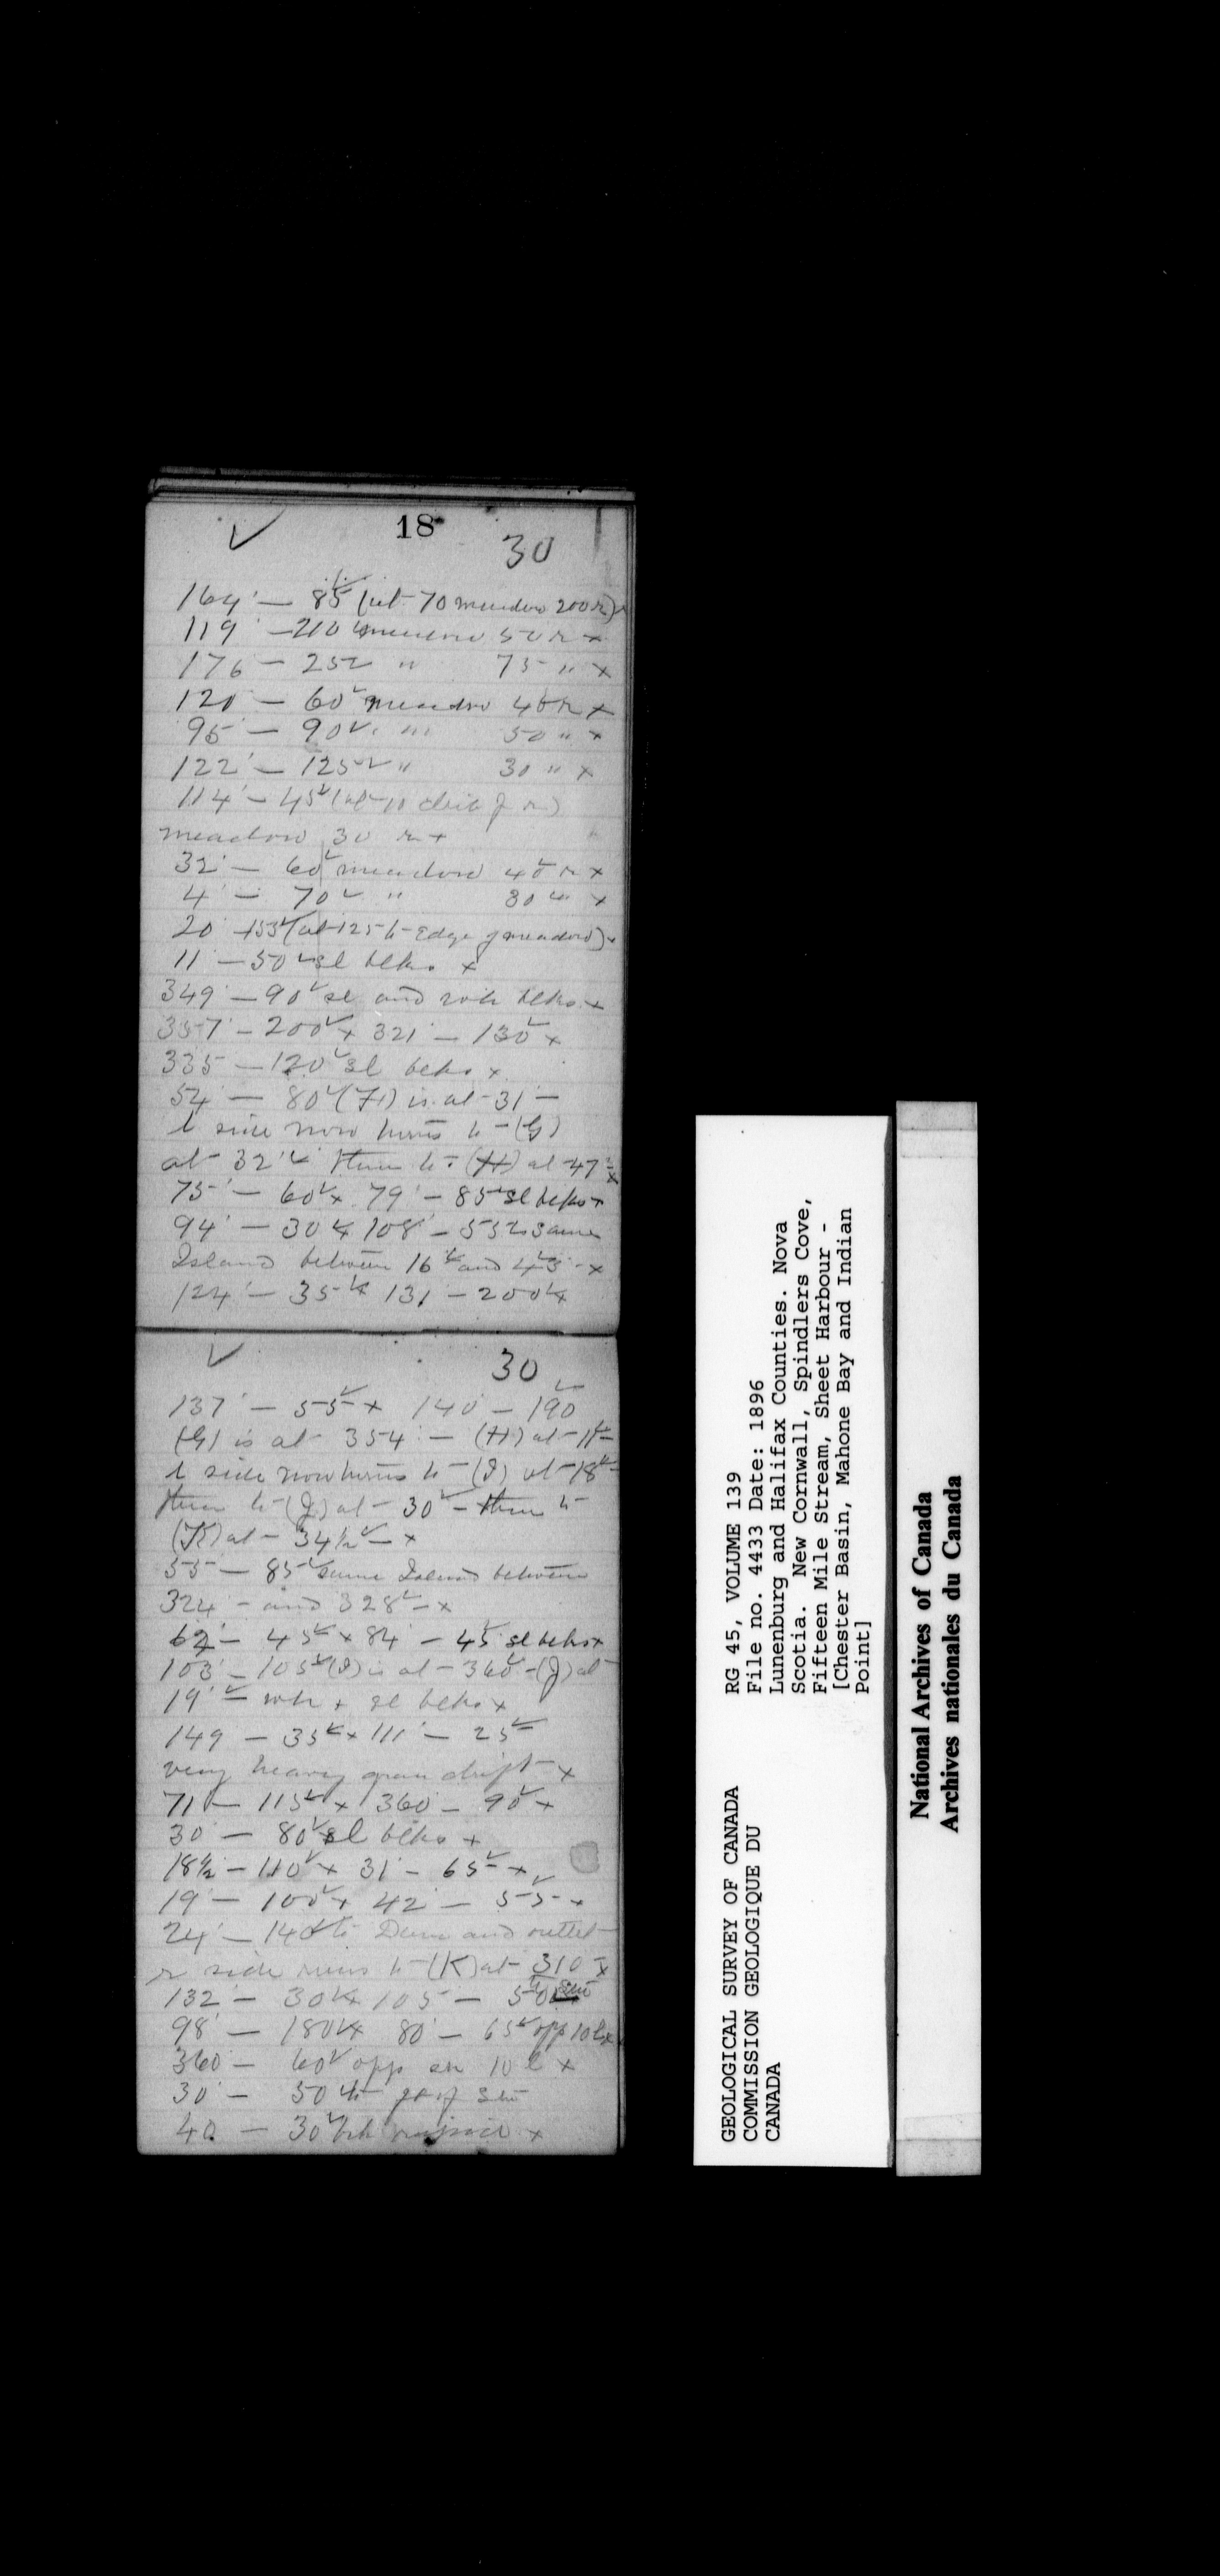 18
✓ 30
164 — 85 ✓ (at 70 meadow 200 r) x
119 — 210 ✓ meadow 50 r x
176 — 25 ✓ " 75 " x
120 — 60 ✓ meadow 40 r x
95 — 90 ✓ " 50 " x
122 — 125 ✓ " 30 " x
114 — 45 ✓ (at 10 r)
meadow 30 r x
32 — 60 ✓ meadow 40 r x
4 — 70 ✓ " 30 " x
20 — 153 ✓ (at 125 to Edge of meadow) x
11 — 50 ✓ sl blks x
349 — 90 ✓ sl and whi blks x
357 — 200 ✓ x 321 — 130 ✓ x
335 — 120 ✓ sl blks x
54 — 80 ✓ (F) is at 31 —
l side now turns to (G)
at 32 ✓ then to (H) at 47 ✓ x
75 — 60 ✓ x 79 — 85 ✓ sl blks x
94 — 30 ✓ x 108 — 55 ✓ same
Island between 16 ✓ and 43 ✓ x
124 — 35 ✓ x 131 — 200 ✓ x
✓ 30
137 — 55 ✓ x 140 — 190 ✓
(G) is at 354 — (H) at 11 ✓
l side now turns to (I) at 18 ✓
then to (J) at 30 ✓ — then to
(K) at 34½ ✓ — x
55 — 85 ✓ same Island between
324 — and 328 ✓ — x
62 — 45 ✓ x 84 — 45 sl blks x
103 — 105 ✓ (I) is at 360 ✓ — (J) at
19 ✓ — whi + sl blks x
149 — 35 ✓ x 111 — 25 ✓
very heavy gran drift x
71 — 115 ✓ x 360 — 90 ✓ x
30 — 80 ✓ sl blks x
18½ — 110 ✓ x 31 — 65 ✓ x
19 — 100 ✓ x 42 — 55 ✓ x
24 — 140 ✓ to Dam and outlet
r side runs to (K) at 310 x
132 — 30 ✓ x 105 — 50 ✓
98 — 180 ✓ x 80 — 65 ✓ opp 10 l x
360 — 60 ✓ opp on 10 l x
30 — 50 ✓ to
40 — 30 ✓ x
GEOLOGICAL SURVEY OF CANADA
COMMISSION GEOLOGIQUE DU
CANADA
RG 45, VOLUME 139
File no. 4433 Date: 1896
Lunenburg and Halifax Counties. Nova
Scotia. New Cornwall, Spindlers Cove,
Fifteen Mile Stream, Sheet Harbour -
[Chester Basin, Mahone Bay and Indian
Point]
National Archives of Canada
Archives nationales du Canada